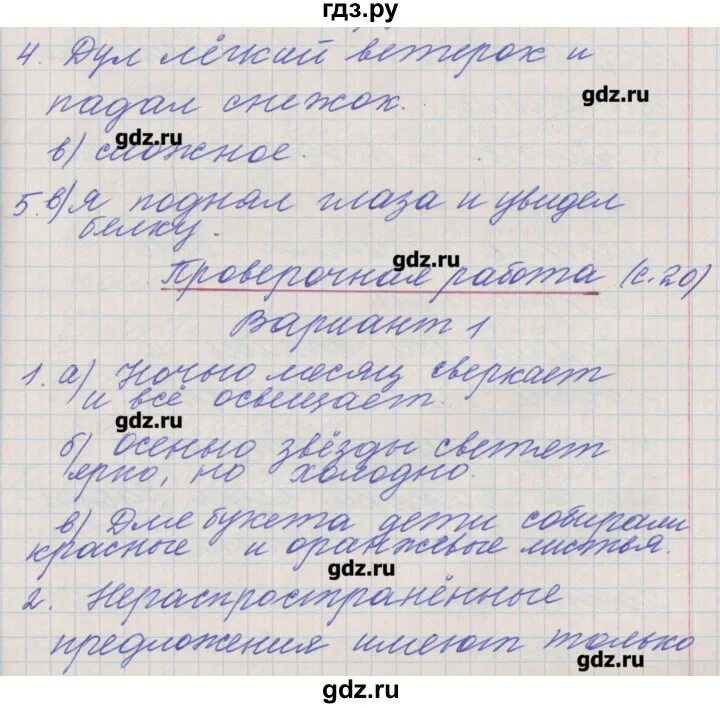 гдз.ру
4. Дул лёгкий ветерок и
падал снежок.
gdz.ru
в) сложное
gdz.ru
5. в) Я поднял глаза и увидел
белку.
gdz.ru
Проверочная работа (с. 20)
Вариант 1
1. а) Ночью месяц сверкает
и всё освещает.
gdz.ru
б) Осенью звёзды светят
ярко, но холодно.
в) Для букета дети собирали
красные и оранжевые листья.
gdz.ru
2. Нераспространённые
предложения имеют только
gdz.ru
gdz.ru